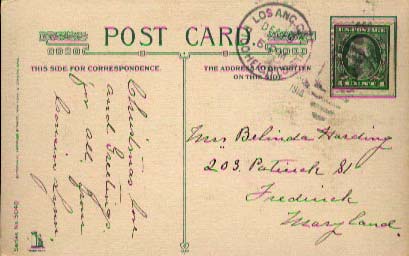 POST CARD
THIS SIDE FOR CORRESPONDENCE.
THE ADDRESS TO BE WRITTEN
ON THIS SIDE.
LOS ANG
Christmas love
and Greetings
for all, your
Cousin
Mrs Belinda Harding
203. Patrick St
Fredrick
Maryland.
Series No. 5040